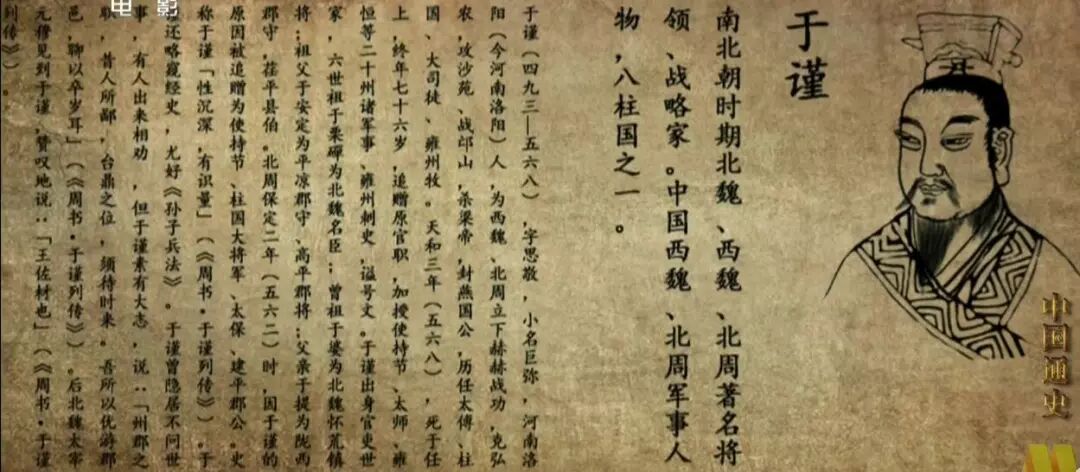 电影
于谨
南北朝时期北魏、西魏、北周著名将
领、战略家。中国西魏、北周军事人
物,八柱国之一。
于谨(四九三—五六八),字思敬,小名巨弥,河南洛
阳(今河南洛阳)人,为西魏、北周立下赫赫战功,克弘
农,攻沙苑、战邙山,杀梁帝,封燕国公,历任太傅、柱
国、大司徒、雍州牧。天和三年(五六八),死于任
上,终年七十六岁,追赠原官职,加授使持节、太师、雍
恒等二十州诸军事、雍州刺史,谥号文。于谨出身官吏世
家,六世祖于栗磾为北魏名臣;曾祖于婆为北魏怀荒镇
将;祖父于安定为平凉郡守、高平郡将;父亲于提为陇西
郡守,茌平县伯。北周保定二年(五六二)时,因于谨的
原因被追赠为使持节、柱国大将军、太保、建平郡公。史
称于谨「性沉深,有识量」(《周书·于谨列传》)。于
谨还略窥经史,尤好《孙子兵法》。于谨曾隐居不问世
事,有人出来相劝,但于谨素有大志,说:「州郡之
职,昔人所鄙,台鼎之位,须待时来。吾所以优游郡
邑,聊以卒岁耳」(《周书·于谨列传》)。后北魏太宰
元穆见到于谨,赞叹地说:「王佐材也」(《周书·于谨
列传》)。
中国通史